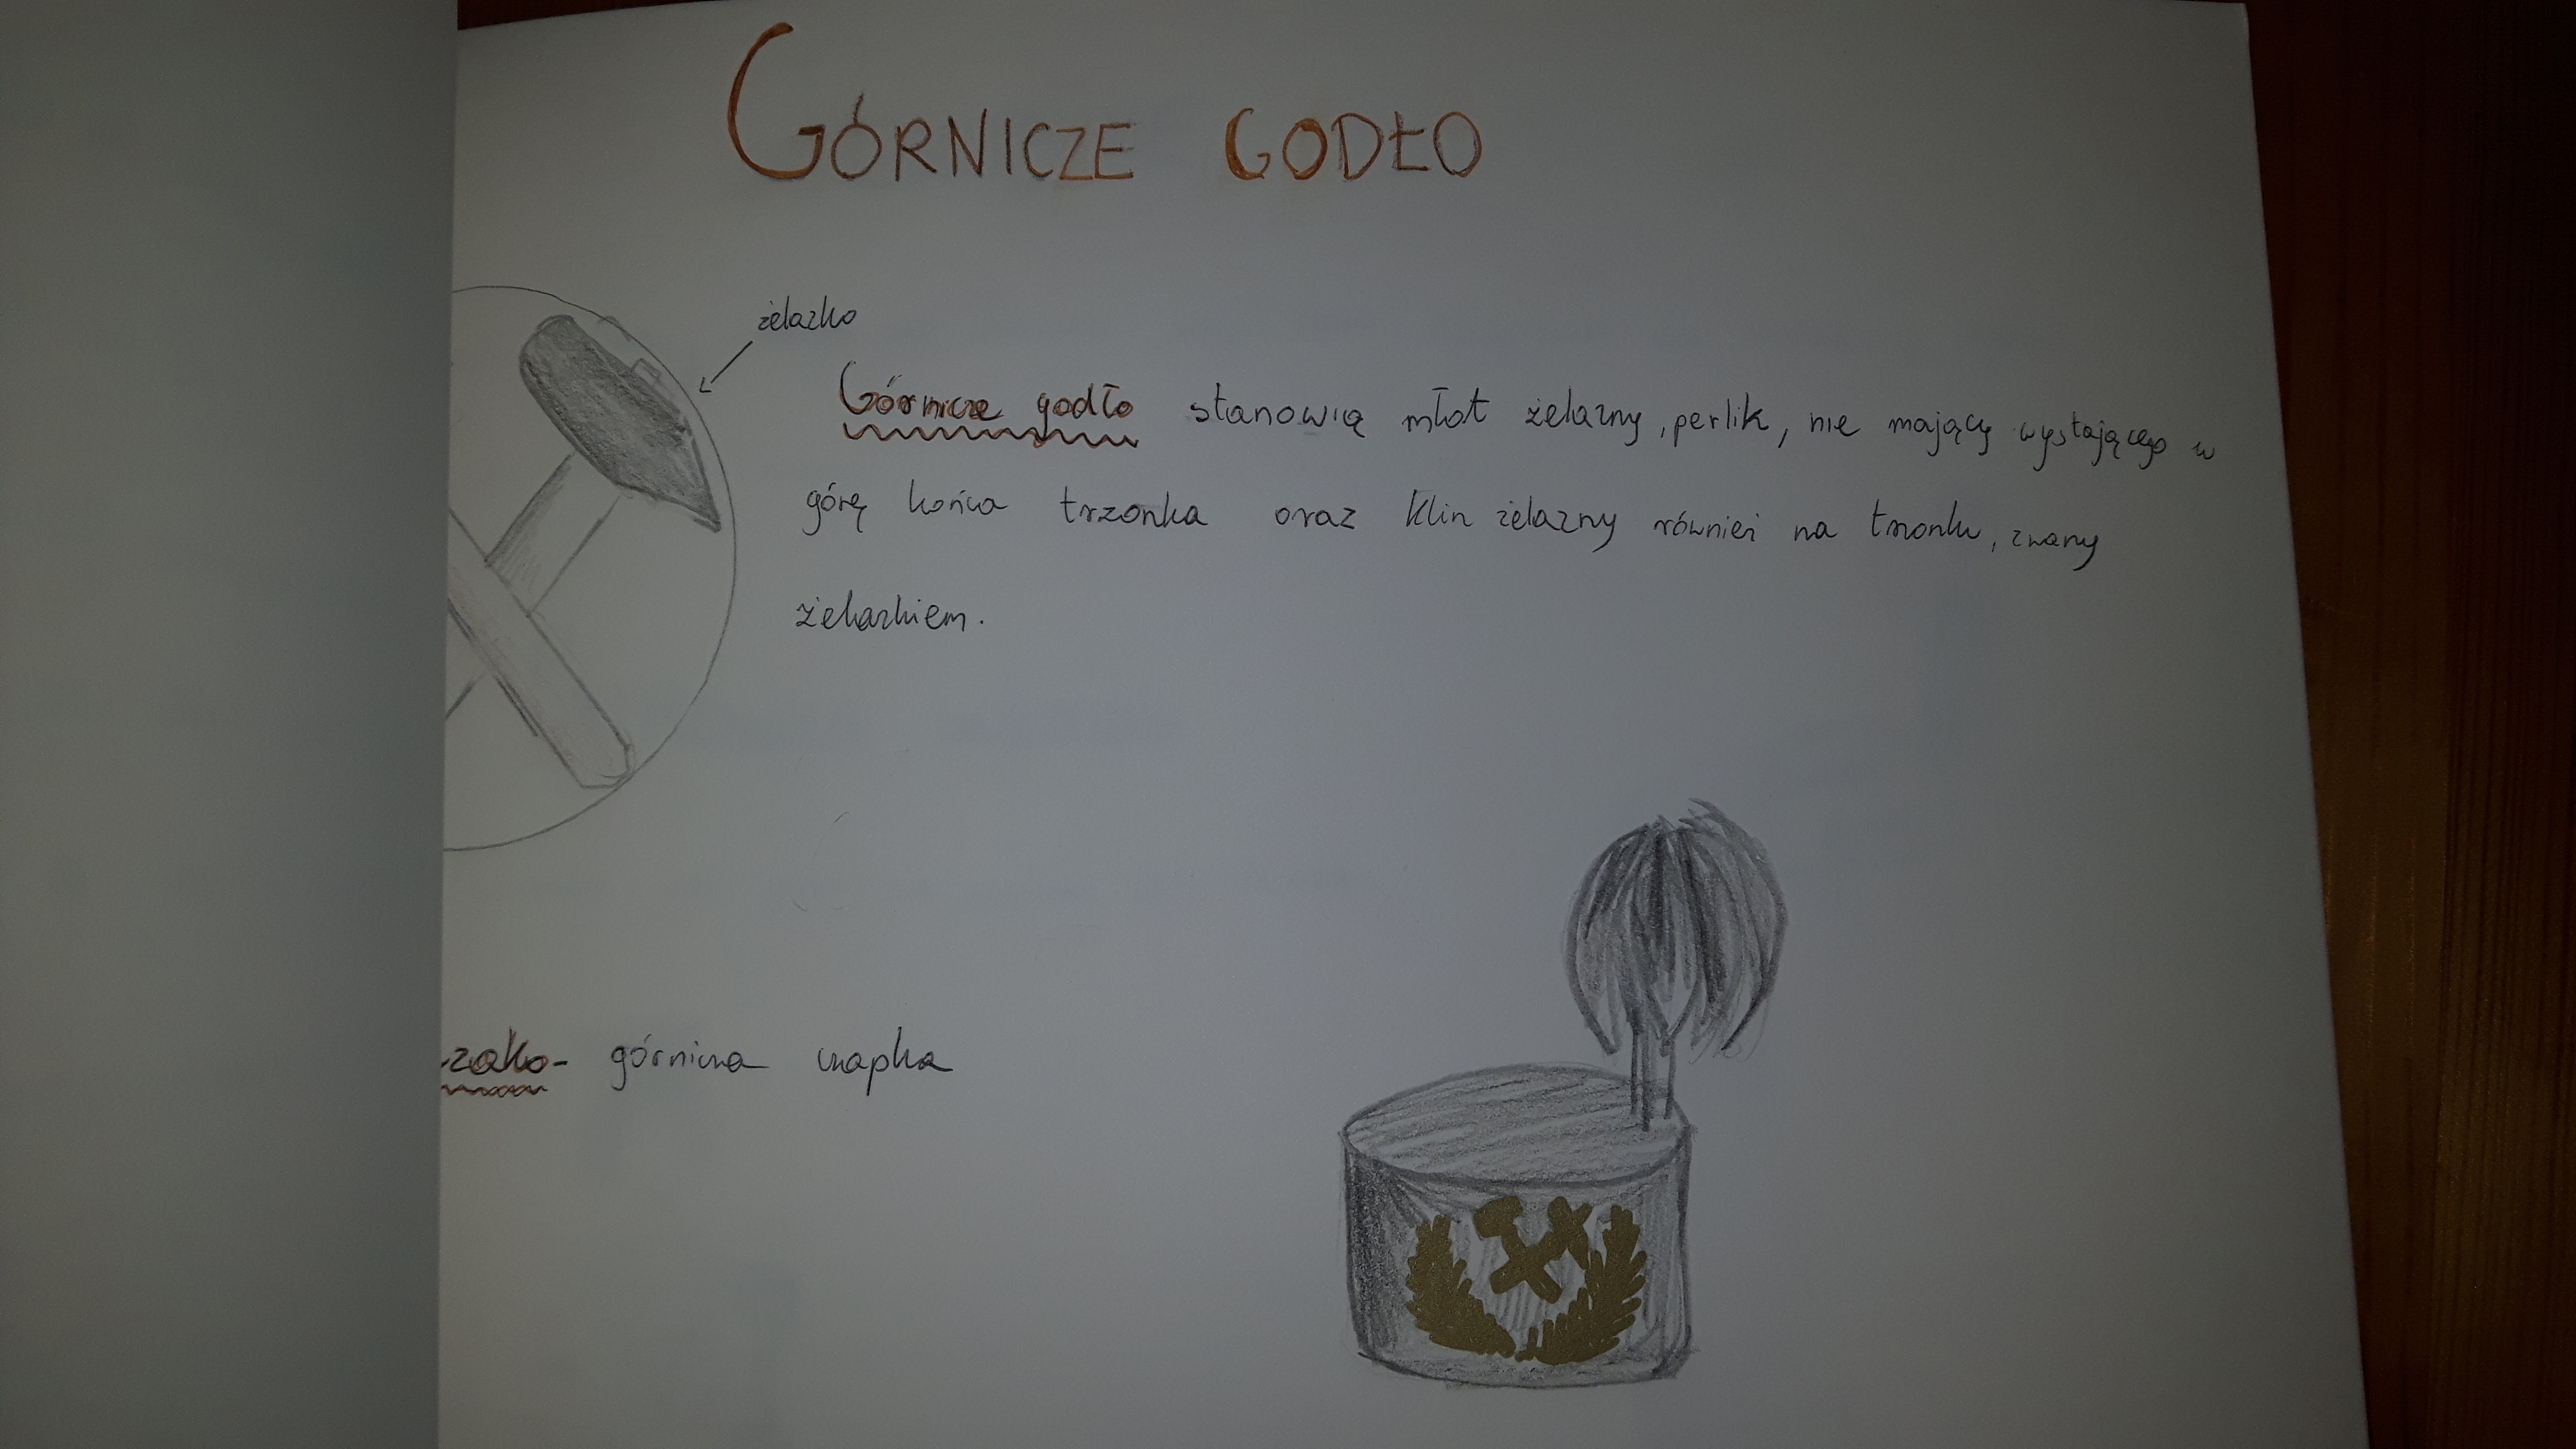 GÓRNICZE GODŁO
żelazko
Górnicze godło stanowią młot żelazny, perlik, nie mający wystającego w
górę końca trzonka oraz klin żelazny również na trzonku, zwany
żelazkiem.
zako- górnicza czapka